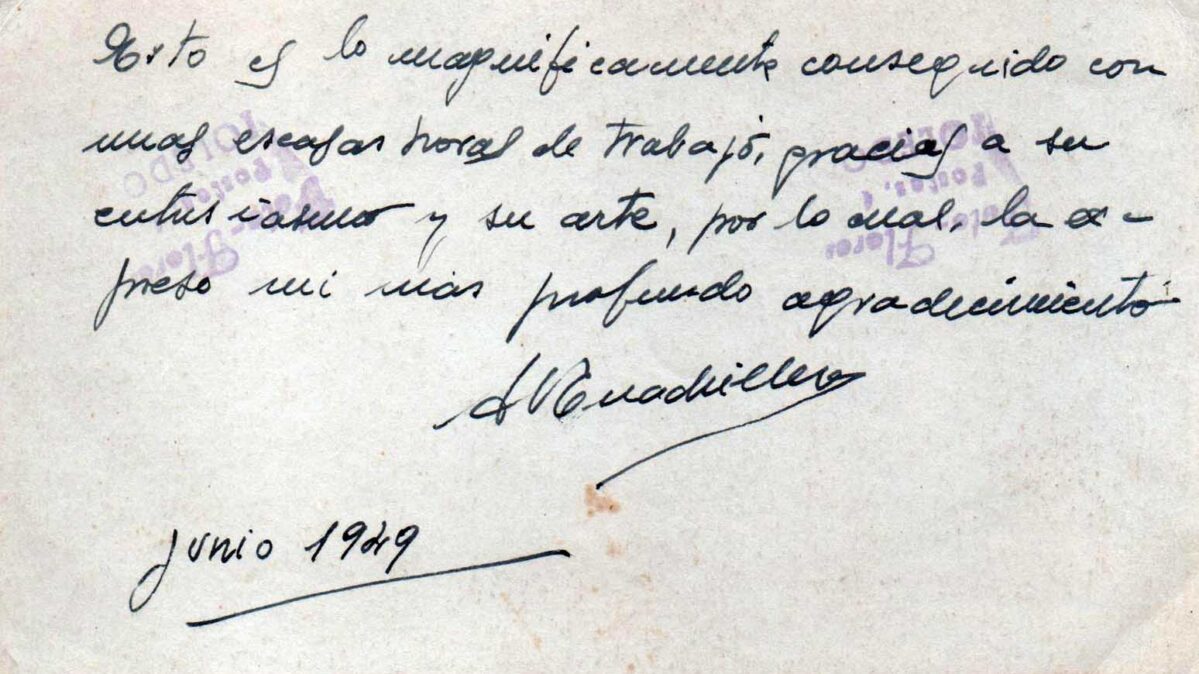 Esto es lo magnificamente conseguido con
unas escasas horas de trabajo, gracias a su
entusiasmo y su arte, por lo cual, la ex-
preso mi mas profundo agradecimiento
junio 1949
TOLEDO
Flores
TOLEDO
Flores